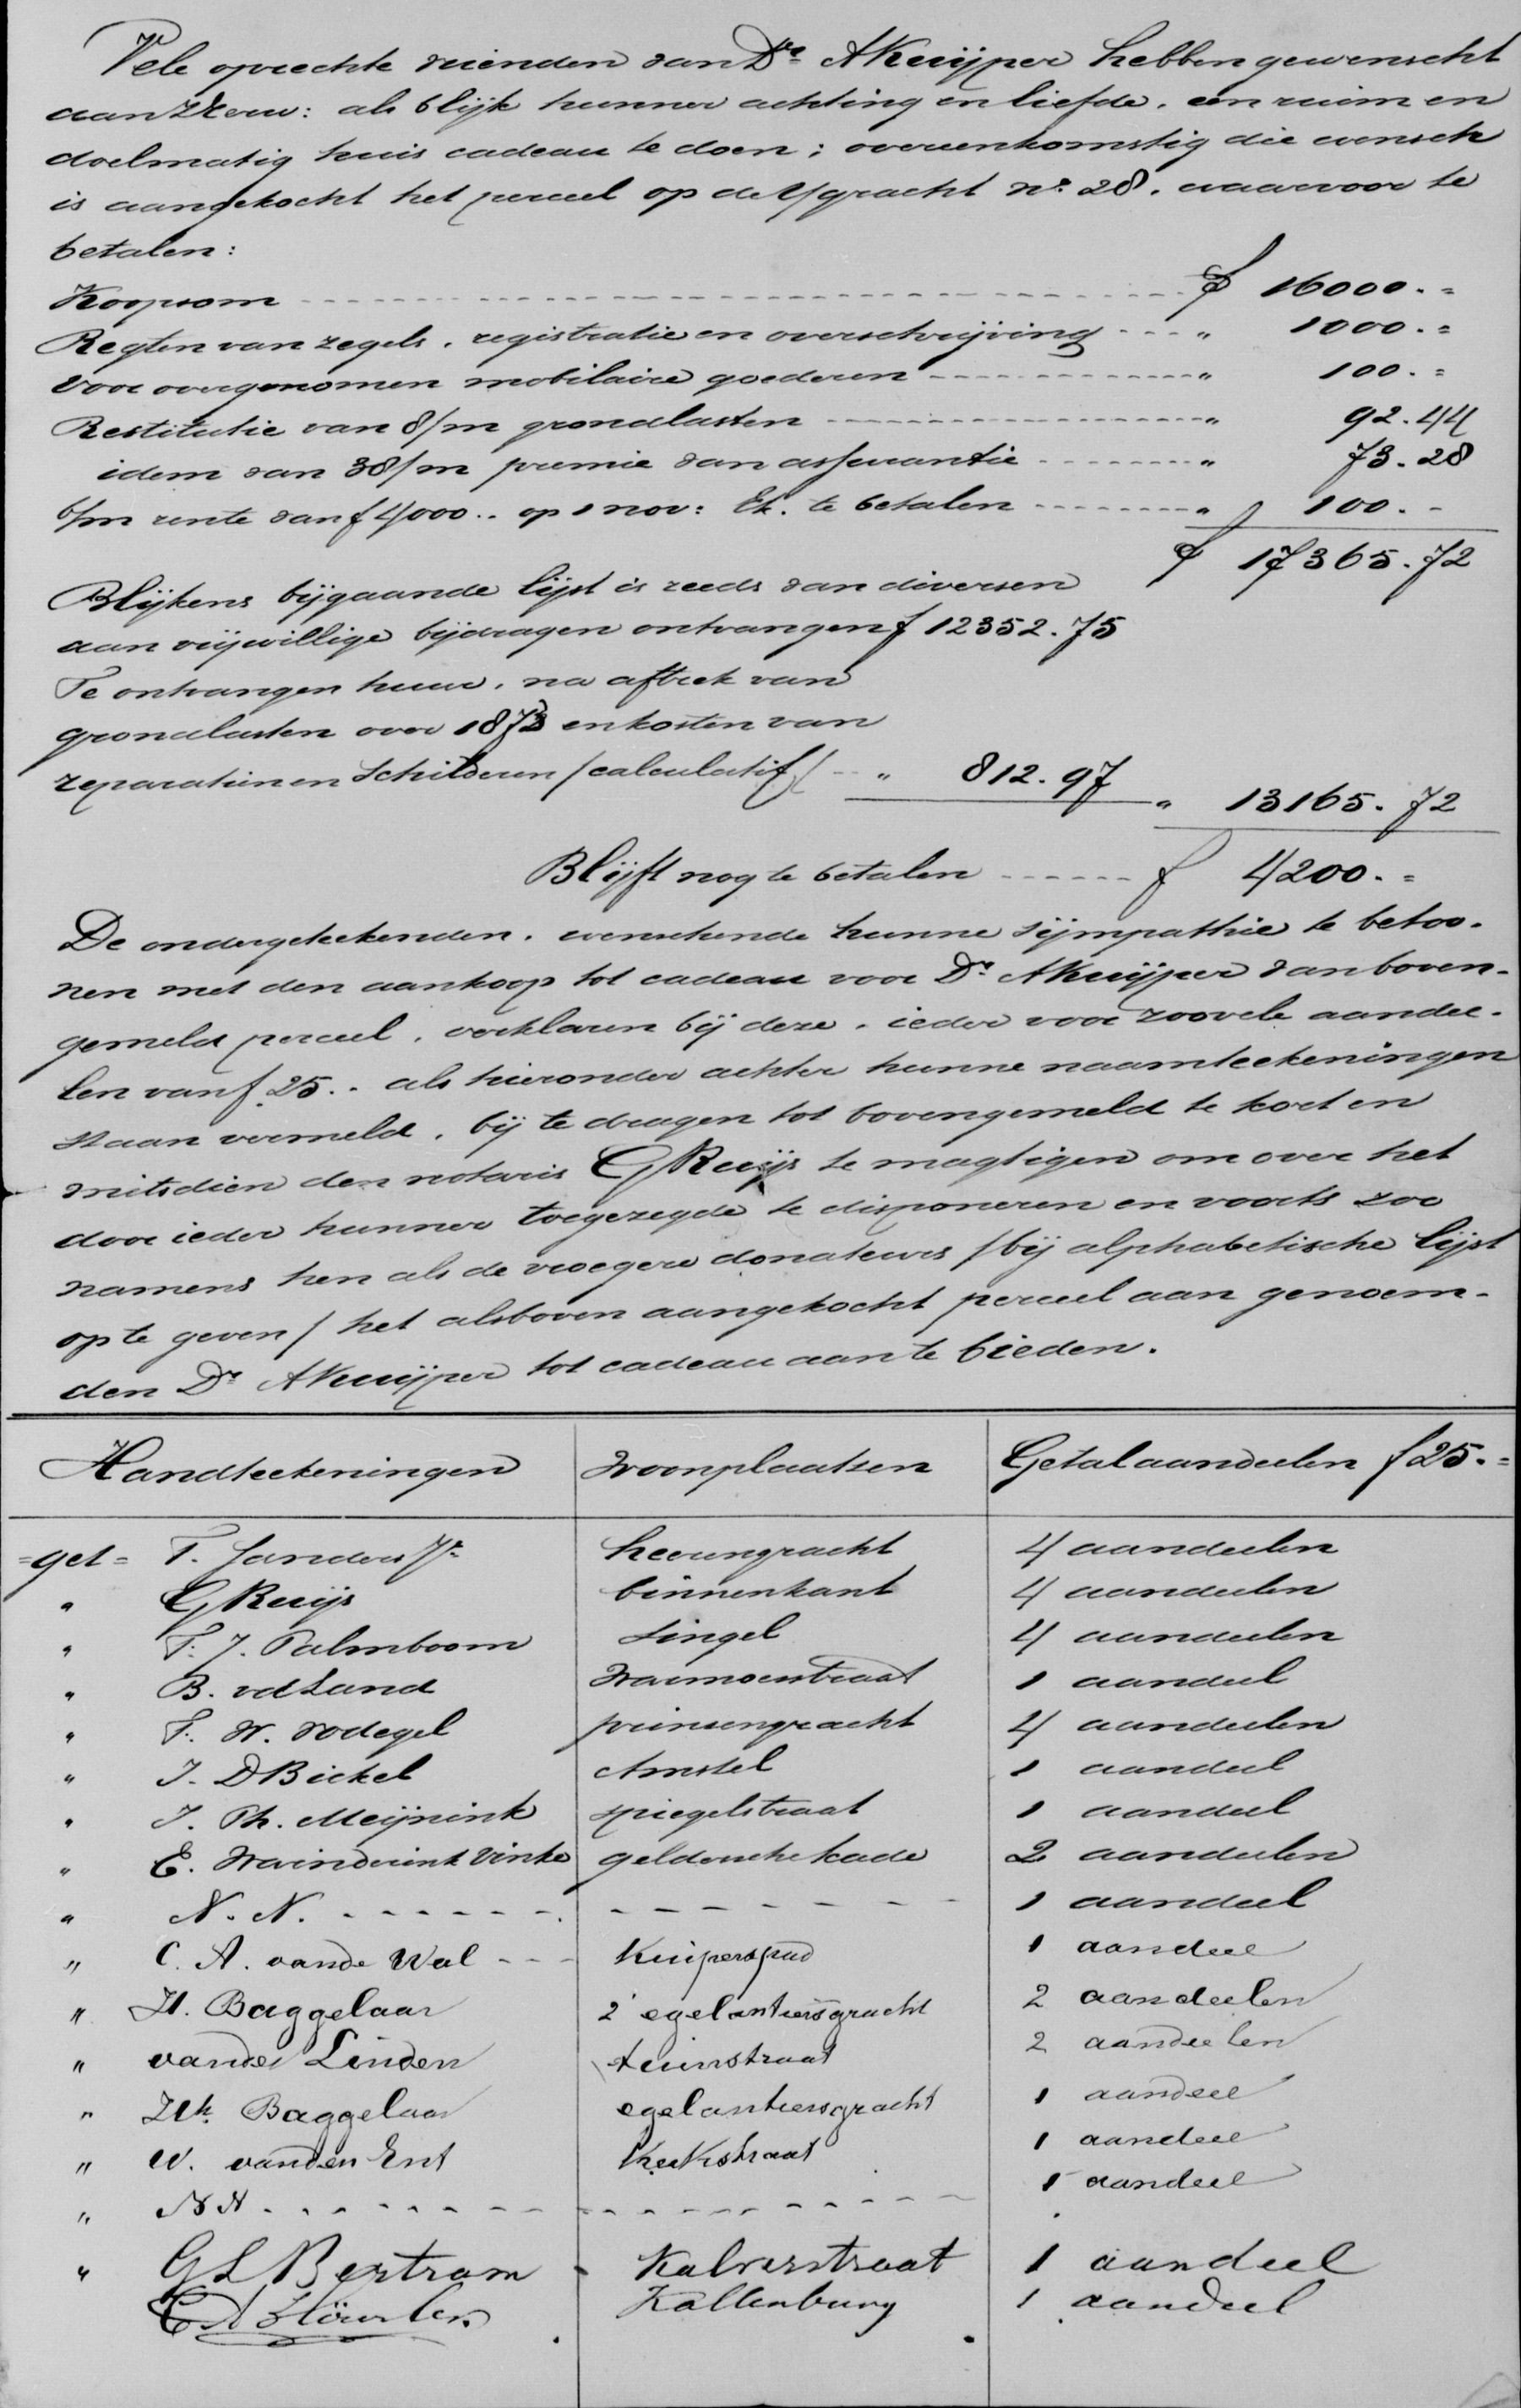 Vele oprechte vrienden van Dr. A Kuijper hebben gewenscht
aan ZEerw: als blijk hunner achting en liefde. een ruim en
doelmatig huis cadeau te doen; overeenkomstig die wensch
is aangekocht het perceel op de Ygracht No. 28. waarvoor te
betalen:
Koopsom f 16000.=
Regten van zegels. registratie en overschrijving " 1000.=
voor overgenomen mobilaire goederen " 100.=
Restitutie van 8/m grondlasten " 92.44
idem van 38/m premie van assurantie " 73.28
6/m rente van f 4000.. op 1 nov: Ek. te betalen " 100.-
f 17365.72
Blijkens bijgaande lijst is reeds van diversen
aan vrijwillige bijdragen ontvangen f 12352.75
Te ontvangen huur. na aftrek van
grondlasten over 1873 en kosten van
reparatien en Schilderen /calculatif/ " 812.97 " 13165.72
Blijft nog te betalen f 4200.=
De ondergeteekenden. wenschende hunne sijmpathie te betoo-
nen met den aankoop tot cadeau voor Dr. A Kuijper van boven-
gemeld perceel. verklaren bij deze. ieder voor zoovele aandee-
len van f 25.. als hieronder achter hunne naamteekeningen
staan vermeld. bij te dragen tot bovengemeld te kort en
mitsdien den notaris G Ruijs te magtigen om over het
door ieder hunner toegezegde te disponeren en voorts zoo
namens hen als de vroegere donateurs /bij alphabetische lijst
op te geven/ het alsboven aangekocht perceel aan genoem-
den Dr. A Kuijper tot cadeau aan te bieden.
Handteekeningen Woonplaatsen Getal aandeelen f 25.=
=get= T. Sanders Jr. heerengracht 4 aandeelen
" G Ruijs binnenkant 4 aandeelen
" F. J. Palmboom Singel 4 aandeelen
" B. vd Land Warmoesstraat 1 aandeel
" F. W. Wodegel prinsengracht 4 aandeelen
" J. D Bickel Amstel 1 aandeel
" J. Th. Meijnink spiegelstraat 1 aandeel
" E. Wainderink Vinke geldersche kade 2 aandeelen
" N. N. 1 aandeel
" C. A. vande Wal Kuiperspad 1 aandeel
" H. Baggelaar 2e egelantiersgracht 2 aandeelen
" vander Linden tuinstraat 2 aandeelen
" Baggelaar egelantiersgracht 1 aandeel
" W. vanden Ent Kerkstraat 1 aandeel
" NN 1 aandeel
" G L Bertram Kalverstraat 1 aandeel
Kattenburg 1 aandeel